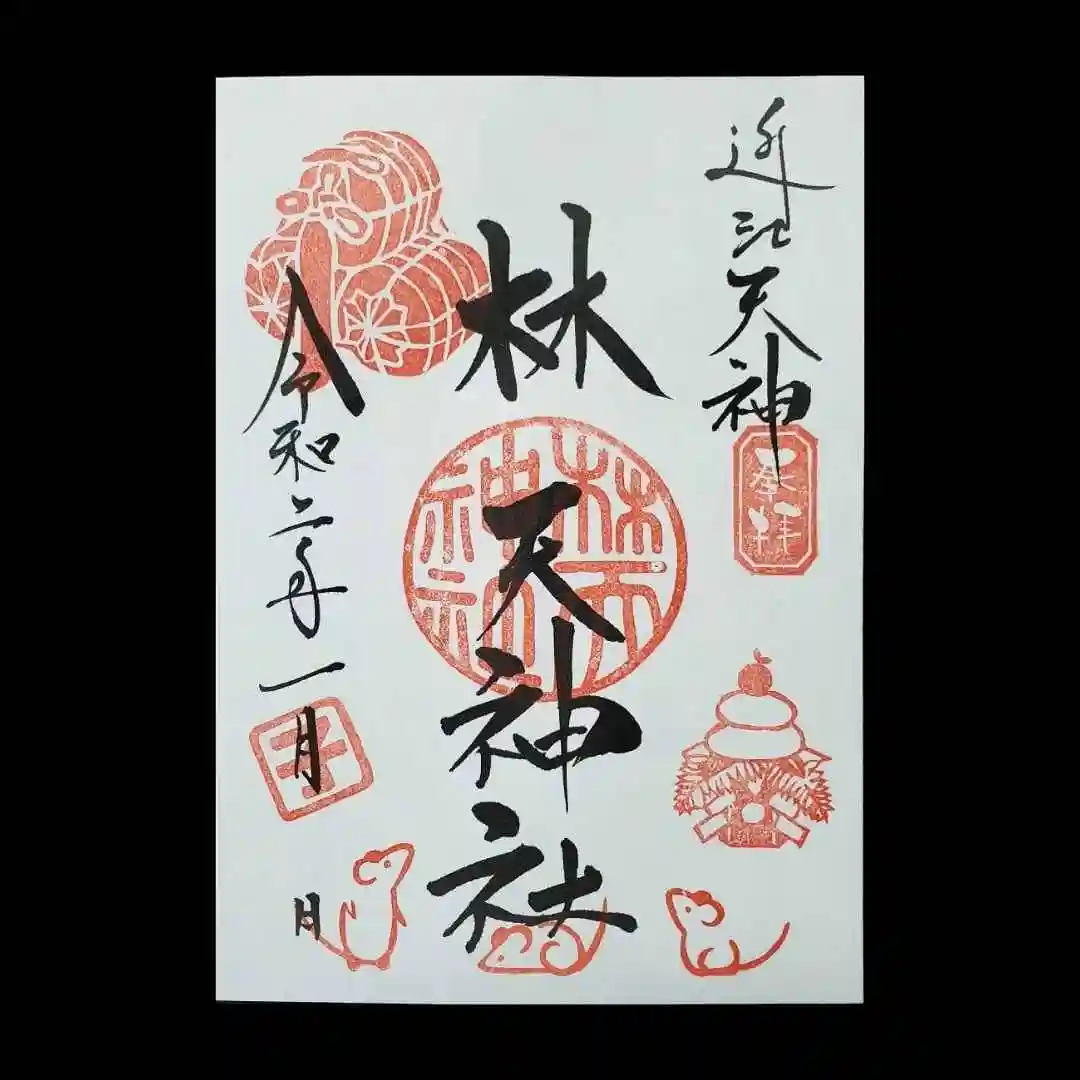 近江天神
奉拝
林天神社
林天
神社
令和二年一月 日
子